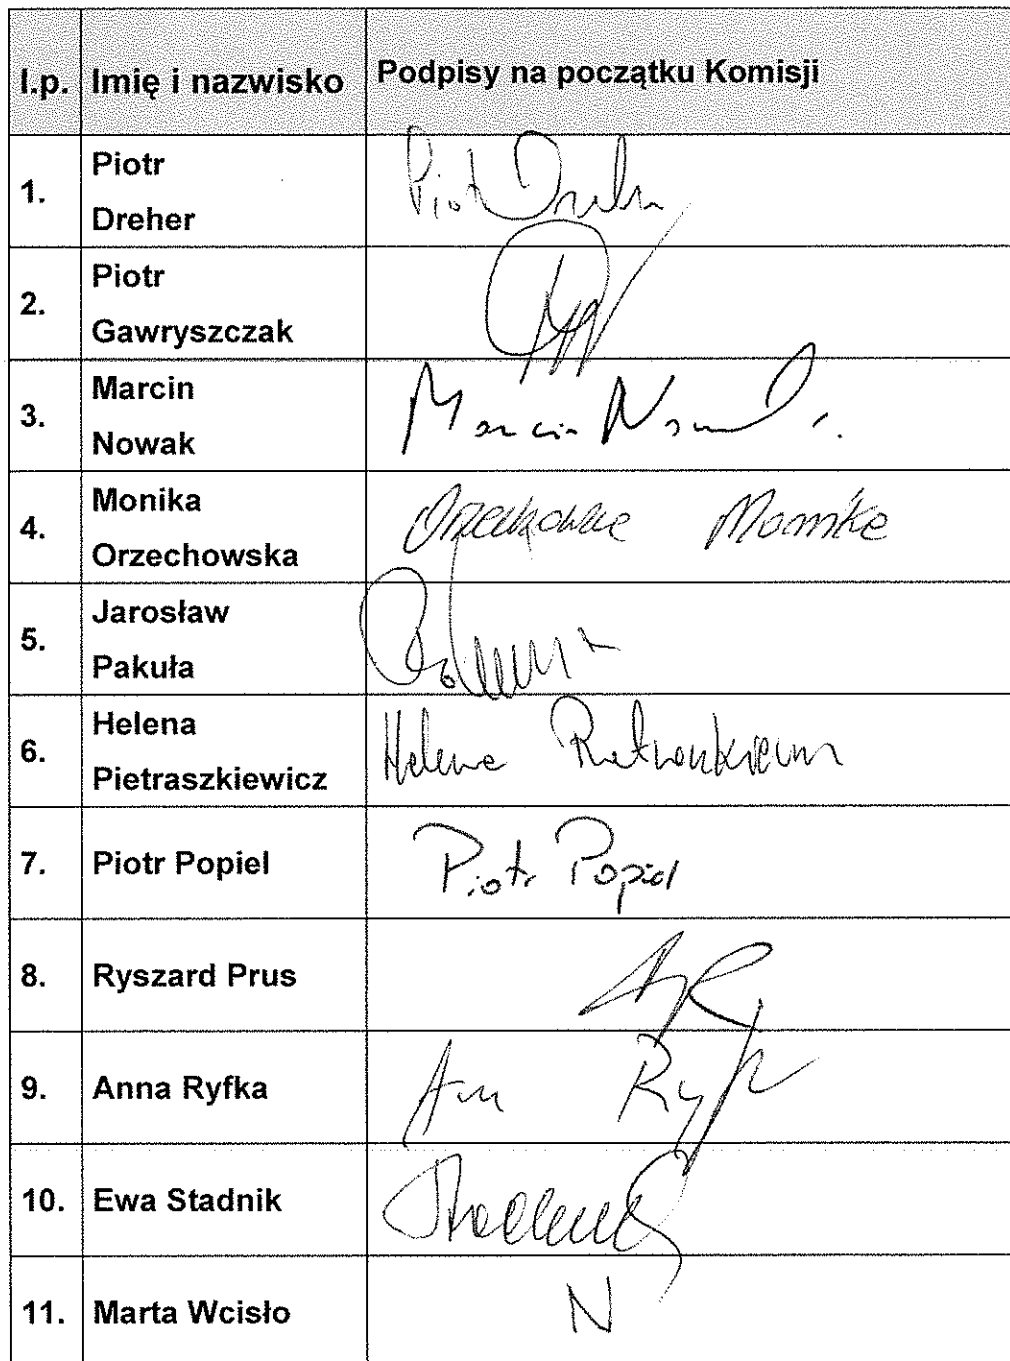 l.p. Imię i nazwisko Podpisy na początku Komisji
1. Piotr
Dreher
Piotr Dreher
2. Piotr
Gawryszczak
3. Marcin
Nowak
Marcin Nowak
4. Monika
Orzechowska
Orzechowska Monika
5. Jarosław
Pakuła
6. Helena
Pietraszkiewicz
Helena Pietraszkiewicz
7. Piotr Popiel Piotr Popiel
8. Ryszard Prus
9. Anna Ryfka
10. Ewa Stadnik
11. Marta Wcisło N